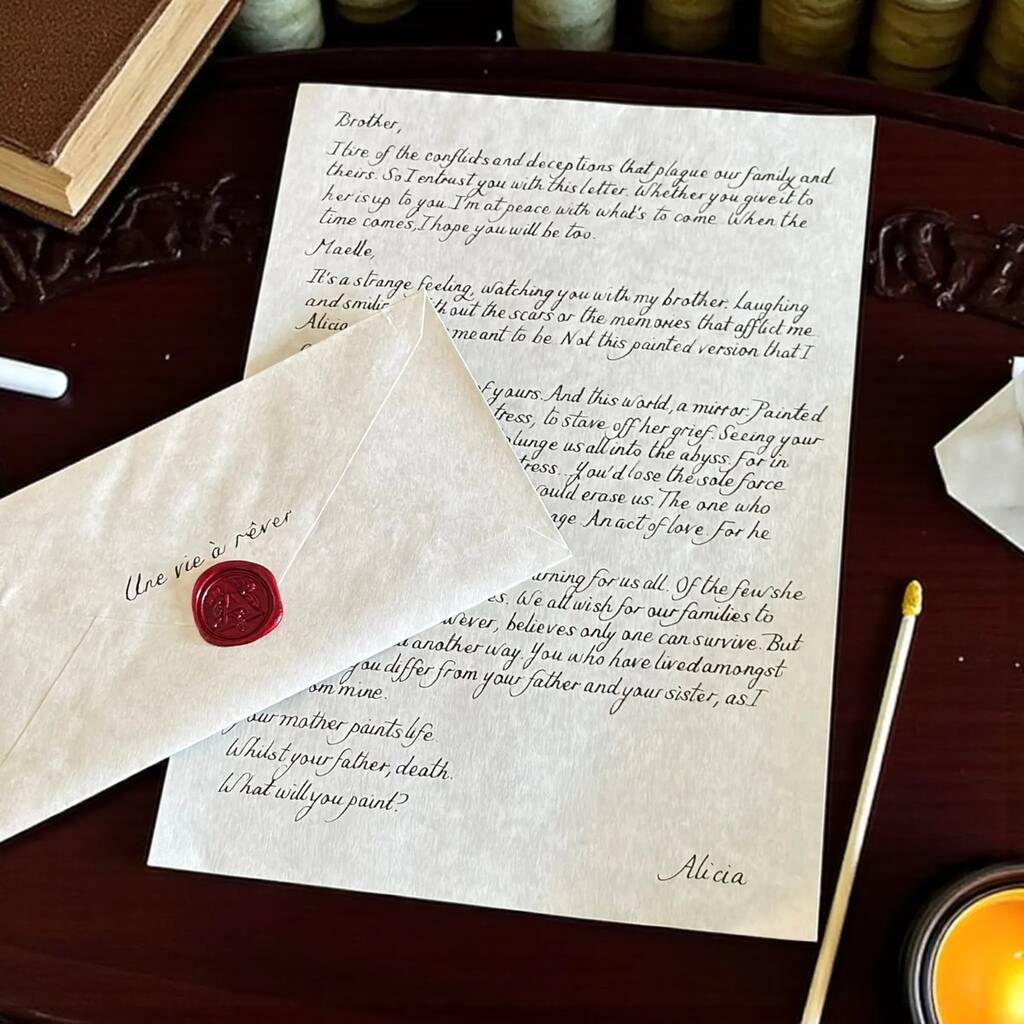 Brother,
I tire of the conflicts and deceptions that plague our family and
theirs. So I entrust you with this letter. Whether you give it to
her is up to you. I'm at peace with what's to come. When the
time comes, I hope you will be too.
Maelle,
It's a strange feeling, watching you with my brother. Laughing
and smiling out the scars or the memories that afflict me.
Alicia meant to be. Not this painted version that I
of yours. And this world, a mirror. Painted
to stave off her grief. Seeing your
plunge us all into the abyss. For in
You'd lose the sole force
would erase us. The one who
An act of love. For he
for us all. Of the few she
We all wish for our families to
believes only one can survive. But
another way. You who have lived amongst
you differ from your father and your sister, as I
mine.
Your mother paints life.
Whilst your father, death.
What will you paint?
Alicia
Une vie à rêver